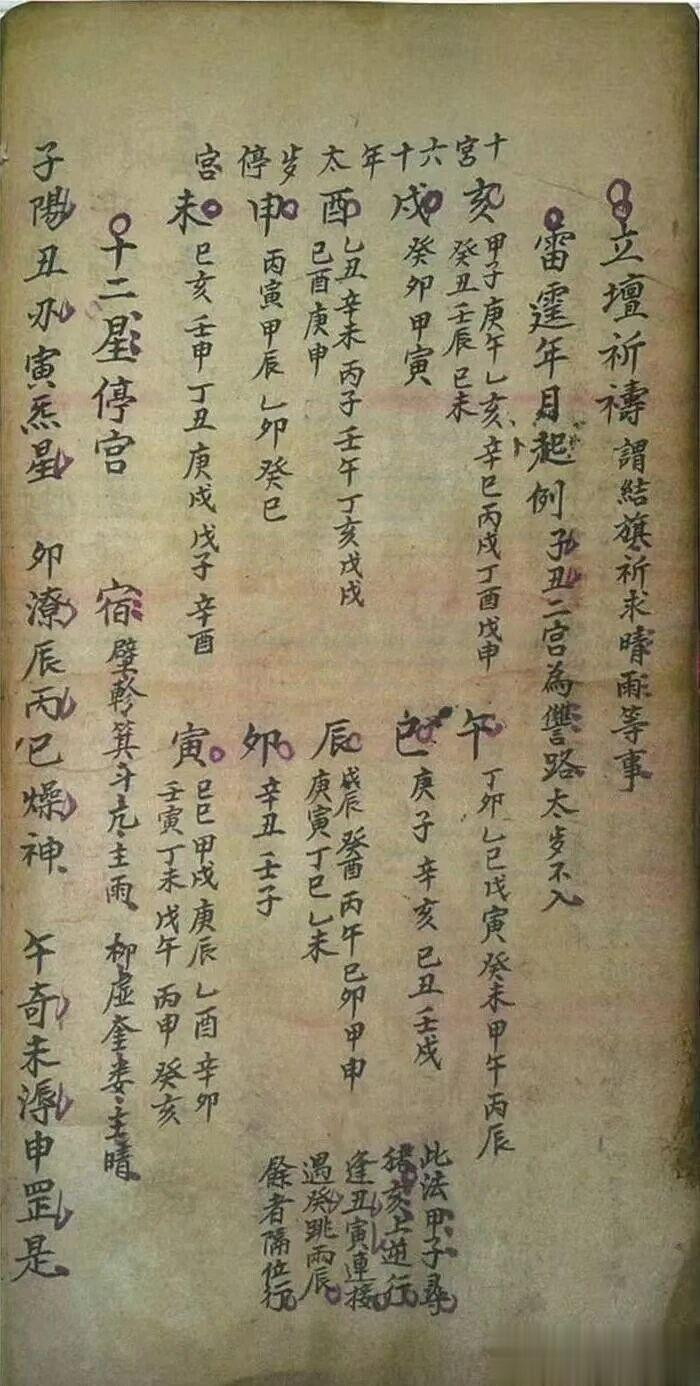 立壇祈禱 謂結旗祈求晴雨等事
雷霆年月起例 子丑二宮為讐路太岁不入
十宮六十年太岁停宮
亥 甲子庚午乙亥辛巳丙戌丁酉戊申
癸丑壬辰己未
戌 癸卯甲寅
酉 乙丑辛未丙子壬午丁亥戊戌
己酉庚申
申 丙寅甲辰乙卯癸巳
未 己亥壬申丁丑庚戌戊子辛酉
午 丁卯乙巳戊寅癸未甲午丙辰
巳 庚子辛亥己丑壬戌
辰 戊辰癸酉丙午己卯甲申
庚寅丁巳乙未
卯 辛丑壬子
寅 己巳甲戌庚辰乙酉辛卯
壬寅丁未戊午丙申癸亥
此法甲子尋
猪亥上逆行
逢丑寅連接
遇癸跳兩辰
餘者隔位行
十二星停宮 宿 壁軫箕斗亢主雨 柳虛奎娄主晴
子陽丑刅寅炁星 卯潦辰丙巳燥神 午奇未溽申罡是